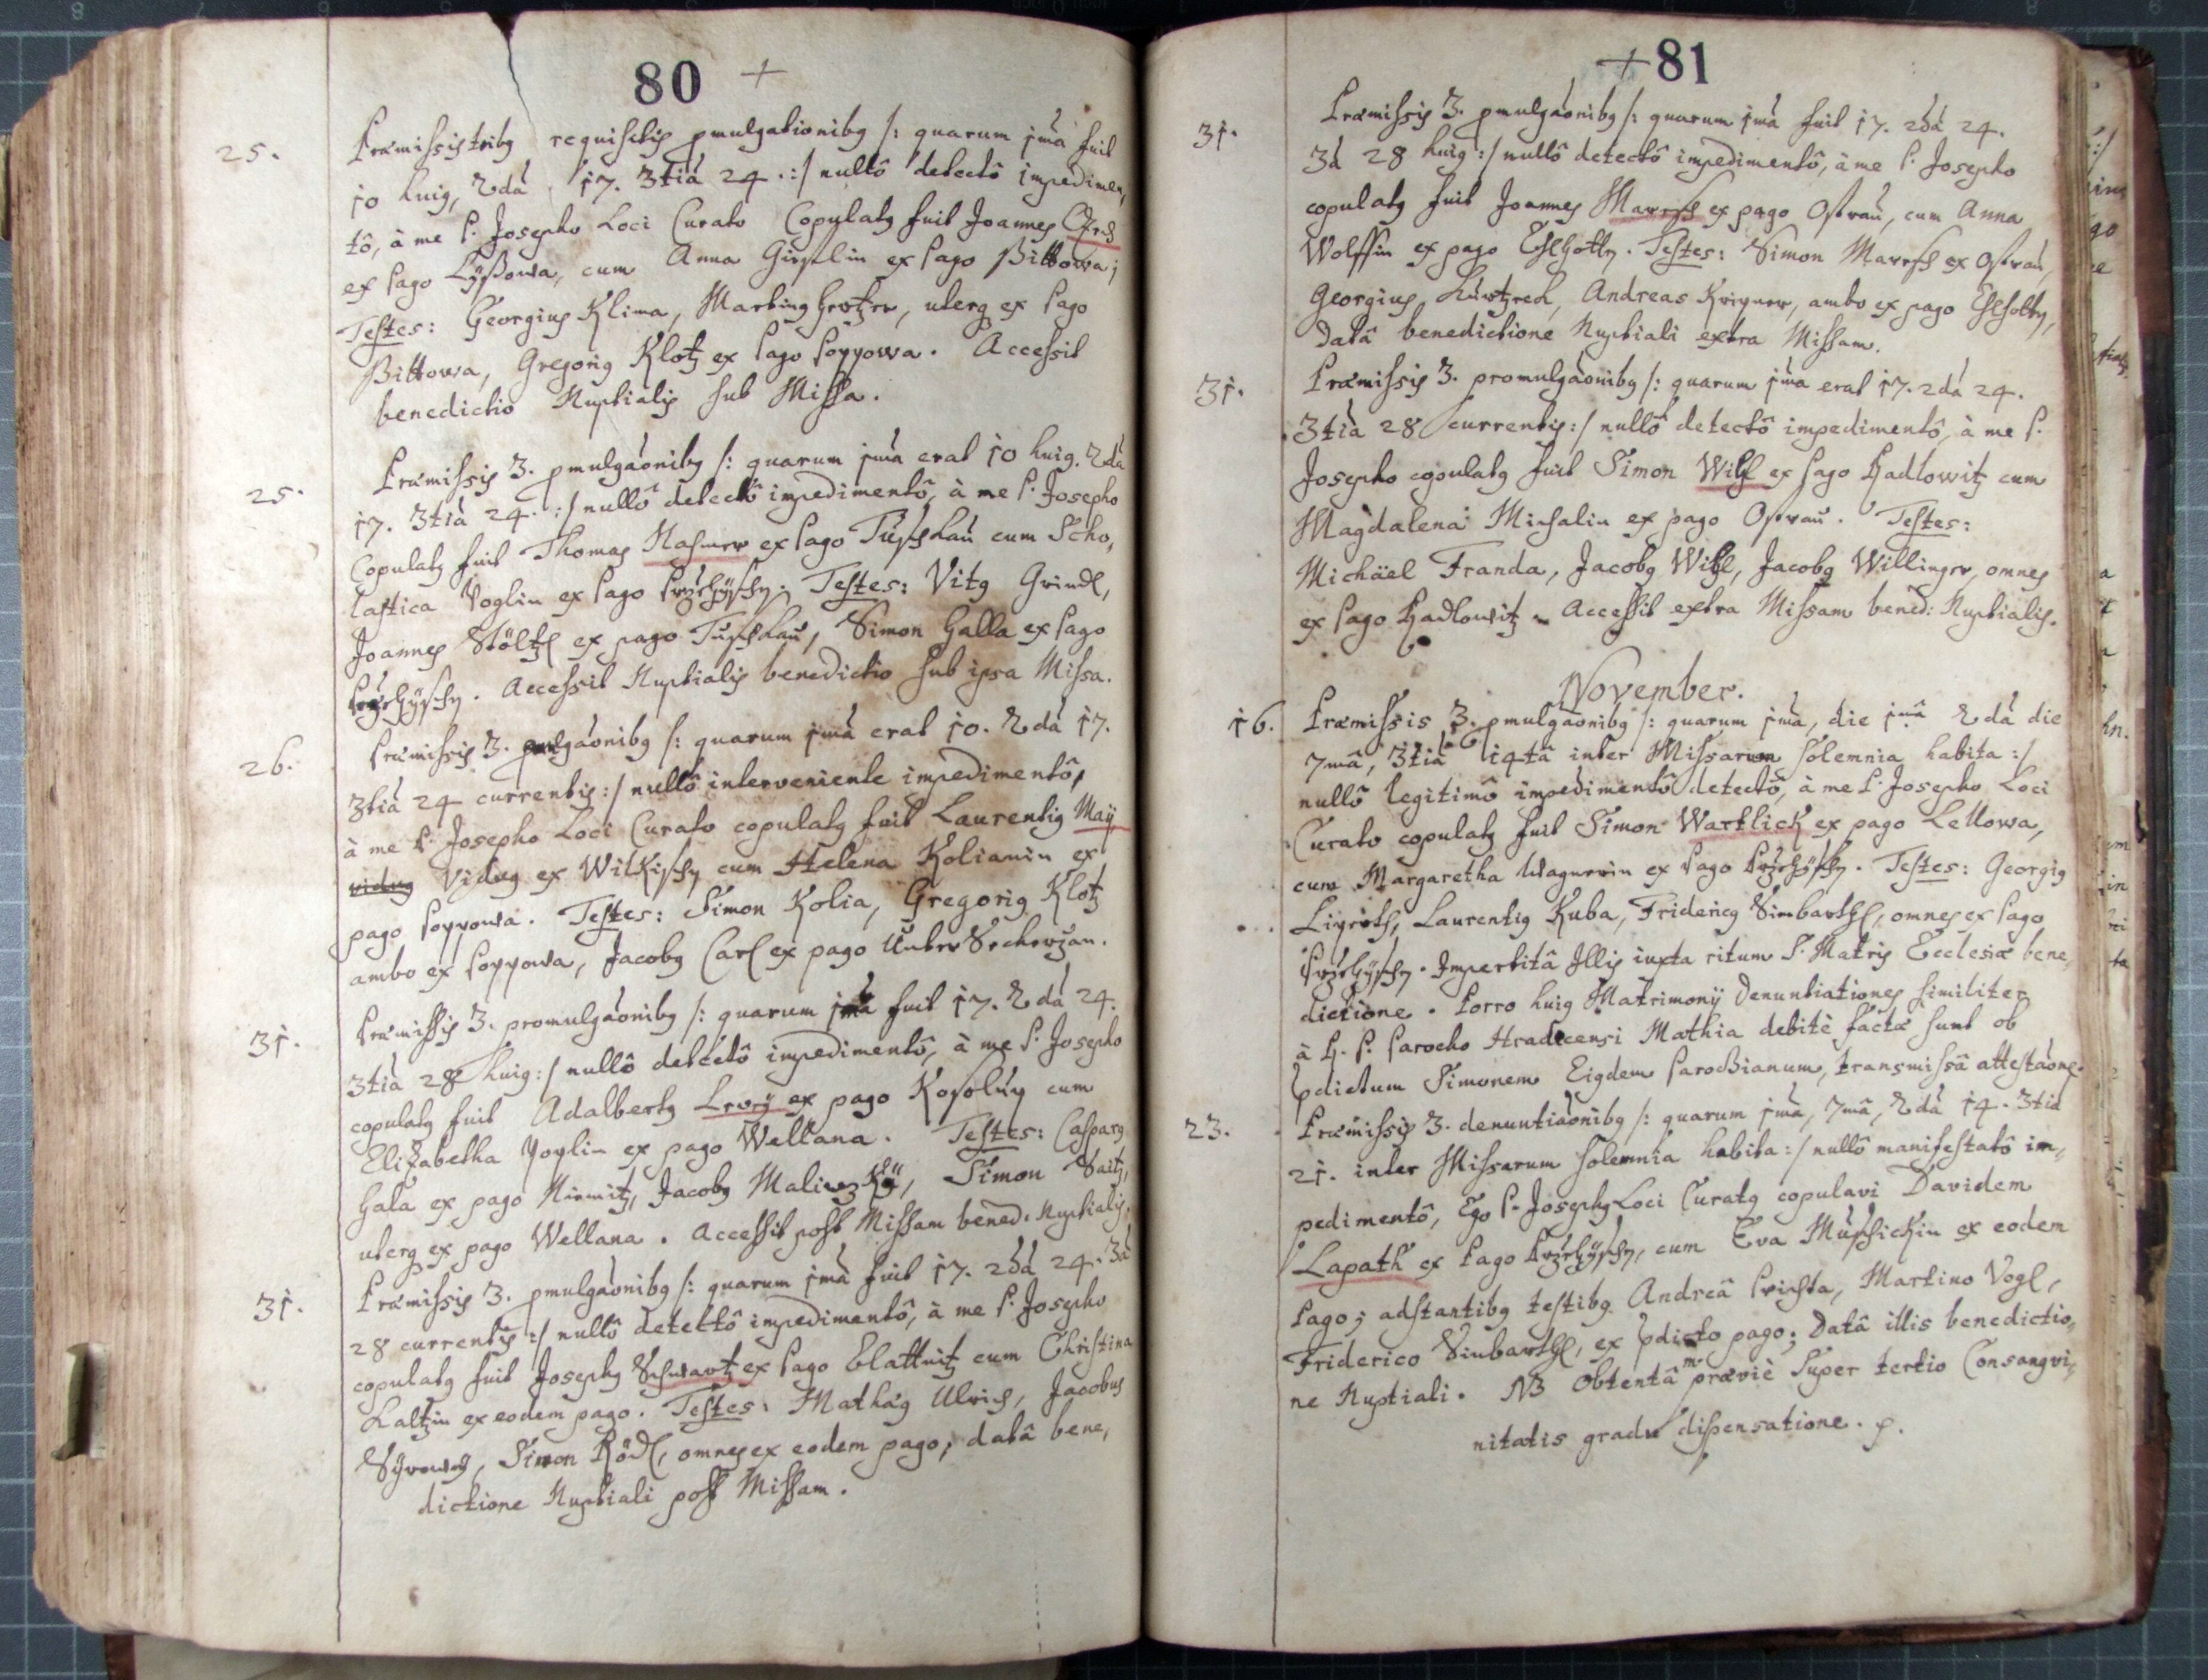 80 +
25. Præmissis tribg requisitis pmulgationibg /: quarum jma fuit
10 huig, 2da 17. 3tia 24. :/ nullô detectô impedimen,
tô, à me P. Josepho Loci Curato Copulatg fuit Joannes
ex Pago Lyßowa, cum Anna ex Pago Bittowa;
Testes: Georgius Klima, Marting uterq ex Pago
Bittowa, Gregorig Klotz ex Pago Poppowa. Accessit
benedictio Nuptialis sub Missa.
25. Præmissis 3. pmulgaonibg /: quarum jma erat 10 huig. 2da
17. 3tia 24. :/ nullô detectô impedimentô, à me P. Josepho
Copulatg fuit Thomas Haßmer ex Pago Tuschkau cum Scho,
lastica Voglin ex Pago Testes: Vitg Grindl,
Joannes Stöltzl ex pago Tuschkau, Simon Galla ex Pago
Accessit Nuptialis benedictio sub ipsa Missa.
26. Præmissis 3. pmulgaonibg /: quarum jma erat 10. 2da 17.
3tia 24 currentis :/ nullô interveniente impedimentô,
à me P. Josepho Loci Curato copulatg fuit Laurentig Maÿ
vidug Vidug ex Wilkischn cum Helena Kolianin ex
pago Poppowa. Testes: Simon Kolia, Gregorig Klotz
ambo ex Poppowa, Jacobg Carl ex pago Unter Sekerzan.
31. Præmissis 3. promulgaonibg /: quarum jma fuit 17. 2da 24.
3tia 28 huig :/ nullô detectô impedimentô, à me P. Josepho
copulatg fuit Adalbertg ex pago Kosolup cum
Elizabetha Voglin ex pago Wellana. Testes: Casparg
Hala ex pago Nirmitz, Jacobg Simon Saitz,
uterq ex pago Wellana. Accessit post Missam bened. Nuptialis.
31. Præmissis 3. pmulgaonibg /: quarum jma fuit 17. 2da 24. 3a
28 currentis :/ nullô detectô impedimentô, à me P. Josepho
copulatg fuit Josephg Schwartz ex Pago Blattnitz cum Christina
Laltzin ex eodem pago. Testes: Mathäg Ulrich, Jacobus
Simon Rödl, omnes ex eodem pago; datâ bene,
dictione Nuptiali post Missam.
+ 81
31. Præmissis 3. pmulgaonibg /: quarum jma fuit 17. 2da 24.
3a 28 huig :/ nullô detectô impedimentô, à me P. Josepho
copulatg fuit Joannes Maresch ex pago Ostrau, cum Anna
Wolffin ex pago Elhottn. Testes: Simon Maresch ex Ostrau,
Georgius Andreas ambo ex pago Elhottn,
datâ benedictione Nuptiali extra Missam.
31. Præmissis 3. promulgaonibg /: quarum jma erat 17. 2da 24.
3tia 28 currentis :/ nullô detectô impedimentô, à me P.
Josepho copulatg fuit Simon Wißl ex Pago Hadlowitz cum
Magdalena Michalin ex pago Ostrau. Testes:
Michäel Franda, Jacobg Wißl, Jacobg Willinger, omnes
ex Pago Hadlowitz. Accessit extra Missam bened: Nuptialis.
November.
16. Præmissis 3. pmulgaonibg /: quarum jma, die jma 2da die
7mâ, 3tia 14tâ inter Missarum solemnia habita :/
nullô legitimô impedimentô detectô, à me P. Josepho Loci
Curato copulatg fuit Simon Wartlick ex pago Lettowa,
cum Margaretha Wagnerin ex Pago Testes: Georgig
Laurentig Kuba, Fridericg Sinbarthl, omnes ex Pago
Impertitâ Illis iuxta ritum S. Matris Ecclesiæ bene,
dictione. Porro huig Matrimonÿ Denuntiationes similiter
à H. P. Parocho Hradecensi Mathia debitè factæ sunt ob
pdictum Simonem Eigdem Parochianum, transmissâ attestaone.
23. Præmissis 3. denuntiaonibg /: quarum jma, 7mâ, 2da 14. 3tia
21. inter Missarum solemnia habita :/ nullô manifestatô im,
pedimentô, Ego P. Josephg Loci Curatg copulavi Davidem
Lapath ex Pago cum Eva Muschickin ex eodem
Pago; adstantibg testibg Andreâ Martino Vogl,
Friderico Sinbarthl, ex pdicto pago; Datâ illis benedictio,
ne Nuptiali. NB Obtentâ præviè super tertio Consangvi,
nitatis gradu dispensatione. p.